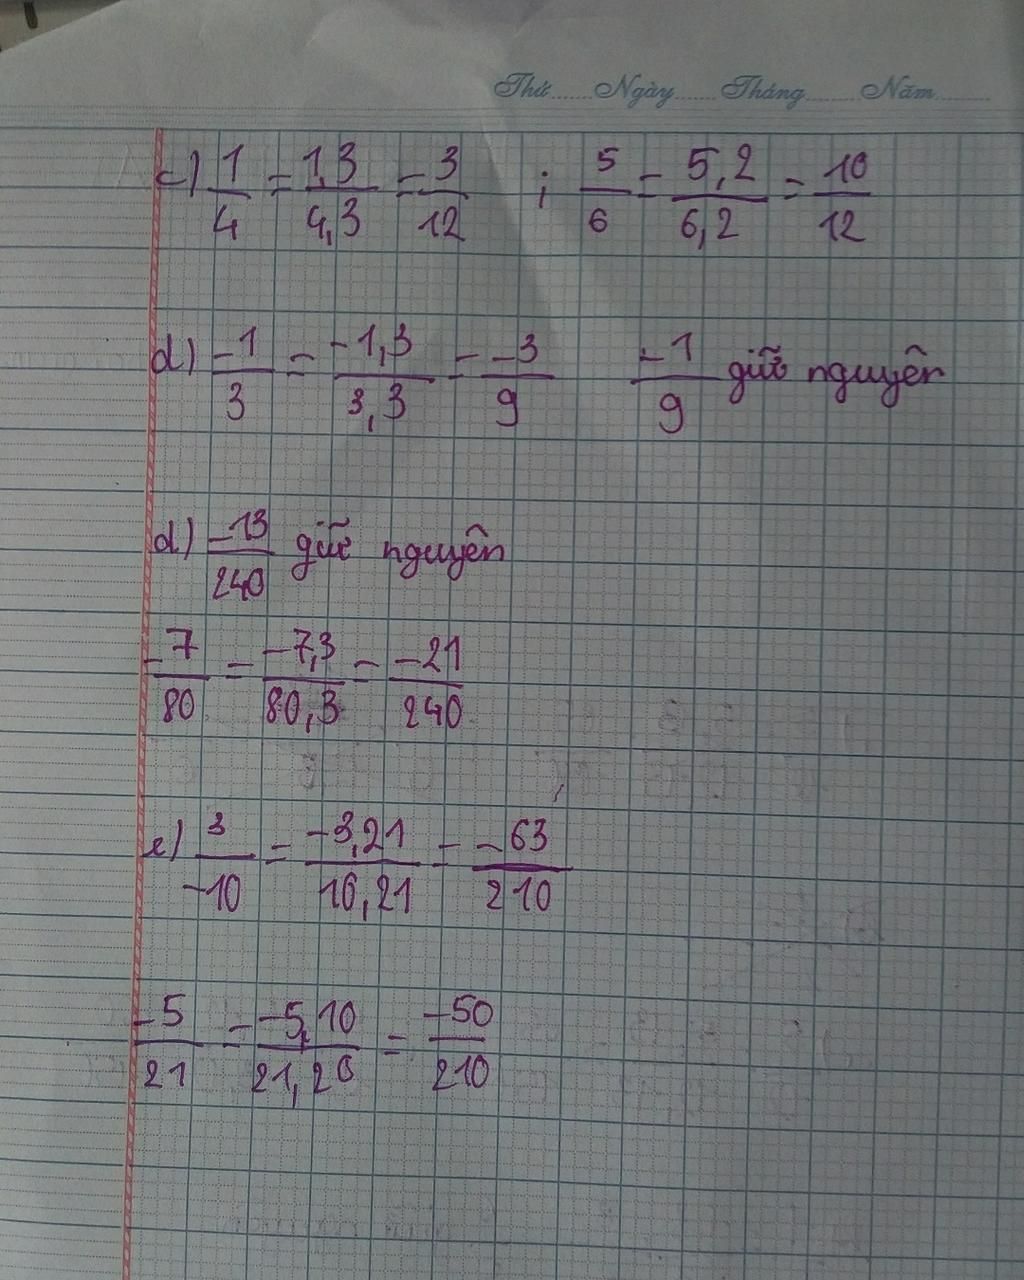 Thứ......Ngày......Tháng......Năm......
c) 1/4 = 1,3/4,3 = 3/12 ; 5/6 = 5,2/6,2 = 10/12
d) -1/3 = -1,3/3,3 = -3/9 -1/9 giữ nguyên
d) -13/240 giữ nguyên
-7/80 = -7,3/80,3 = -21/240
e) 3/-10 = -3,21/10,21 = -63/210
-5/21 = -5,10/21,20 = -50/210